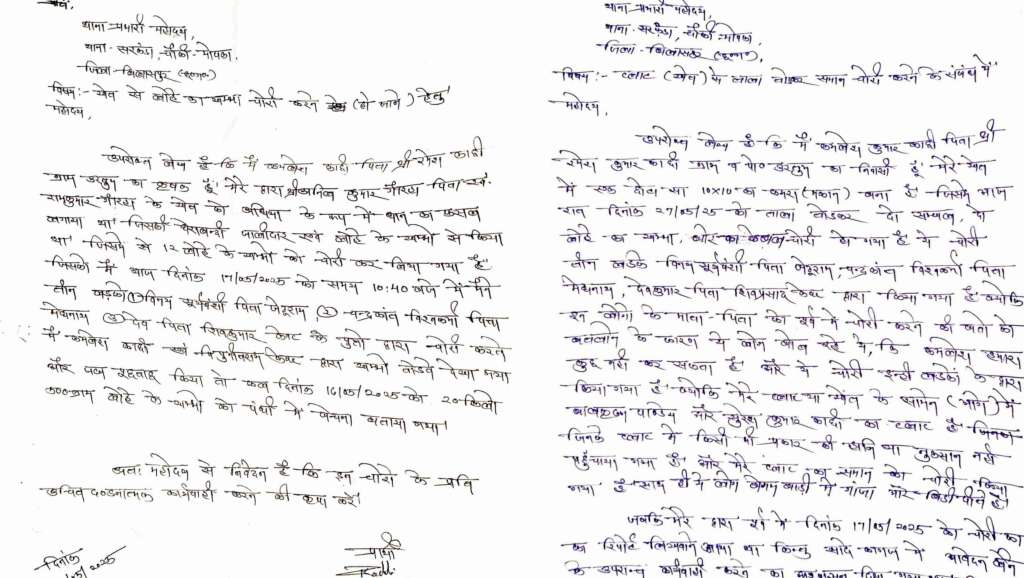 थाना प्रभारी महोदय,
थाना - सरकंडा, चौकी - मोपका,
जिला - बिलासपुर (छ०ग०)
विषय :- खेत से लोहे का खम्भा चोरी करने (हो जाने) हेतु
महोदय,
उपरोक्त लेख है कि मैं कमलेश काछी पिता श्री रमेश काछी
ग्राम का कृषक हूँ मेरे द्वारा श्री अनिल कुमार गौरहा पिता स्व.
रामकुमार गौरहा के खेत को अधिया के रूप में धान का फसल
लगाया था जिसकी घेराबन्दी जालीदार एवं लोहे के खम्भों से किया
था जिसमे से 12 लोहे के खम्भों को चोरी कर लिया गया है
जिसको मैं आज दिनांक 17/05/2025 को समय 10:40 बजे में मैंने
तीन लड़को (1) विनय सूर्यवंशी पिता जेठूराम (2) चन्द्रकांत विश्वकर्मा पिता
मेघनाथ (3) देव पिता शिवकुमार केवट के पुत्रो द्वारा चोरी करते
मैं कमलेश काछी एवं केवट द्वारा खम्भों तोड़ते देखा गया
और जब पूछताछ किया तो कल दिनांक 16/05/2025 को 20 किलो
500 ग्राम लोहे के खम्भो को में बेचना बताया गया।
अतः महोदय से निवेदन है कि इन चोरो के प्रति
उचित दण्डनात्मक कार्यवाही करने की कृपा करें।
दिनांक
/05/2025
प्रार्थी
थाना प्रभारी महोदय,
थाना - सरकंडा, चौकी - मोपका,
जिला - बिलासपुर (छ०ग०),
विषय :- प्लाट (खेत) के ताला तोड़कर समान चोरी करने के संबंध में
महोदय,
उपरोक्त लेख है कि मैं कमलेश कुमार काछी पिता श्री
रमेश कुमार काछी ग्राम व पो० का निवासी हूँ मेरे खेत
में एक छोटा सा 10x10 का कमरा (मकान) बना है जिसमे आज
रात दिनांक 27/05/25 को ताला तोड़कर दो सब्बल, दो
लोहे का खम्भा, बोर का केबल चोरी हो गया है ये चोरी
तीन लड़के विनय सूर्यवंशी पिता जेठूराम, चन्द्रकांत विश्वकर्मा पिता
मेघनाथ, देवकुमार पिता शिवप्रसाद केवट द्वारा किया गया है क्योंकि
इन लोगो के माता-पिता को पूर्व में चोरी करने की बातो को
बतलाने के कारण ये लोग बोल रहे थे, कि कमलेश हमारा
कुछ नहीं कर सकता है और ये चोरी इन्ही लड़कों के द्वारा
किया गया है क्योंकि मेरे प्लाट या खेत के सामने (भाग) में
बालकृष्ण पाण्डेय और सुरेश कुमार काछी का प्लाट है जिनका
जिनके प्लाट में किसी भी प्रकार की हानि या नुकसान नहीं
पहुँचाया गया है और मेरे प्लाट का समान को चोरी किया
गया है साथ ही ये लोग में गांजा और बिड़ी पीते है।
जबकि मेरे द्वारा पूर्व में दिनांक 17/05/2025 को चोरी का
का रिपोर्ट लिखवाने आया था किन्तु सादे कागज में आवेदन लेने
के उपरान्त कार्यवाही करने का दिया गया